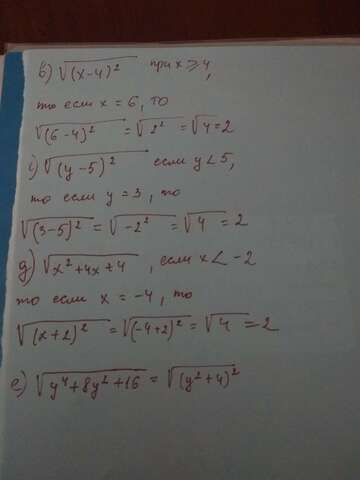 в) √(x-4)² при x ⩾ 4,
то если x = 6, то
√(6-4)² = √2² = √4 = 2
г) √(y-5)² если y < 5,
то если y = 3, то
√(3-5)² = √-2² = √4 = 2
д) √x²+4x+4, если x < -2
то если x = -4, то
√(x+2)² = √(-4+2)² = √4 = 2
е) √y⁴+8y²+16 = √(y²+4)²